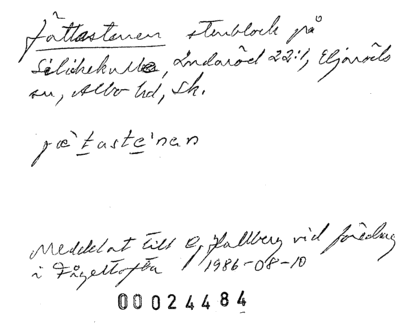 Jättastenen stenblock på
Silokekulle, Lindaröd 22:1, Eljaröds
sn, Albo hd, Sk.
jæ`tastenan
Meddelat till G. Hallberg vid föredrag
i Fågeltofta 1986-08-10
00024484